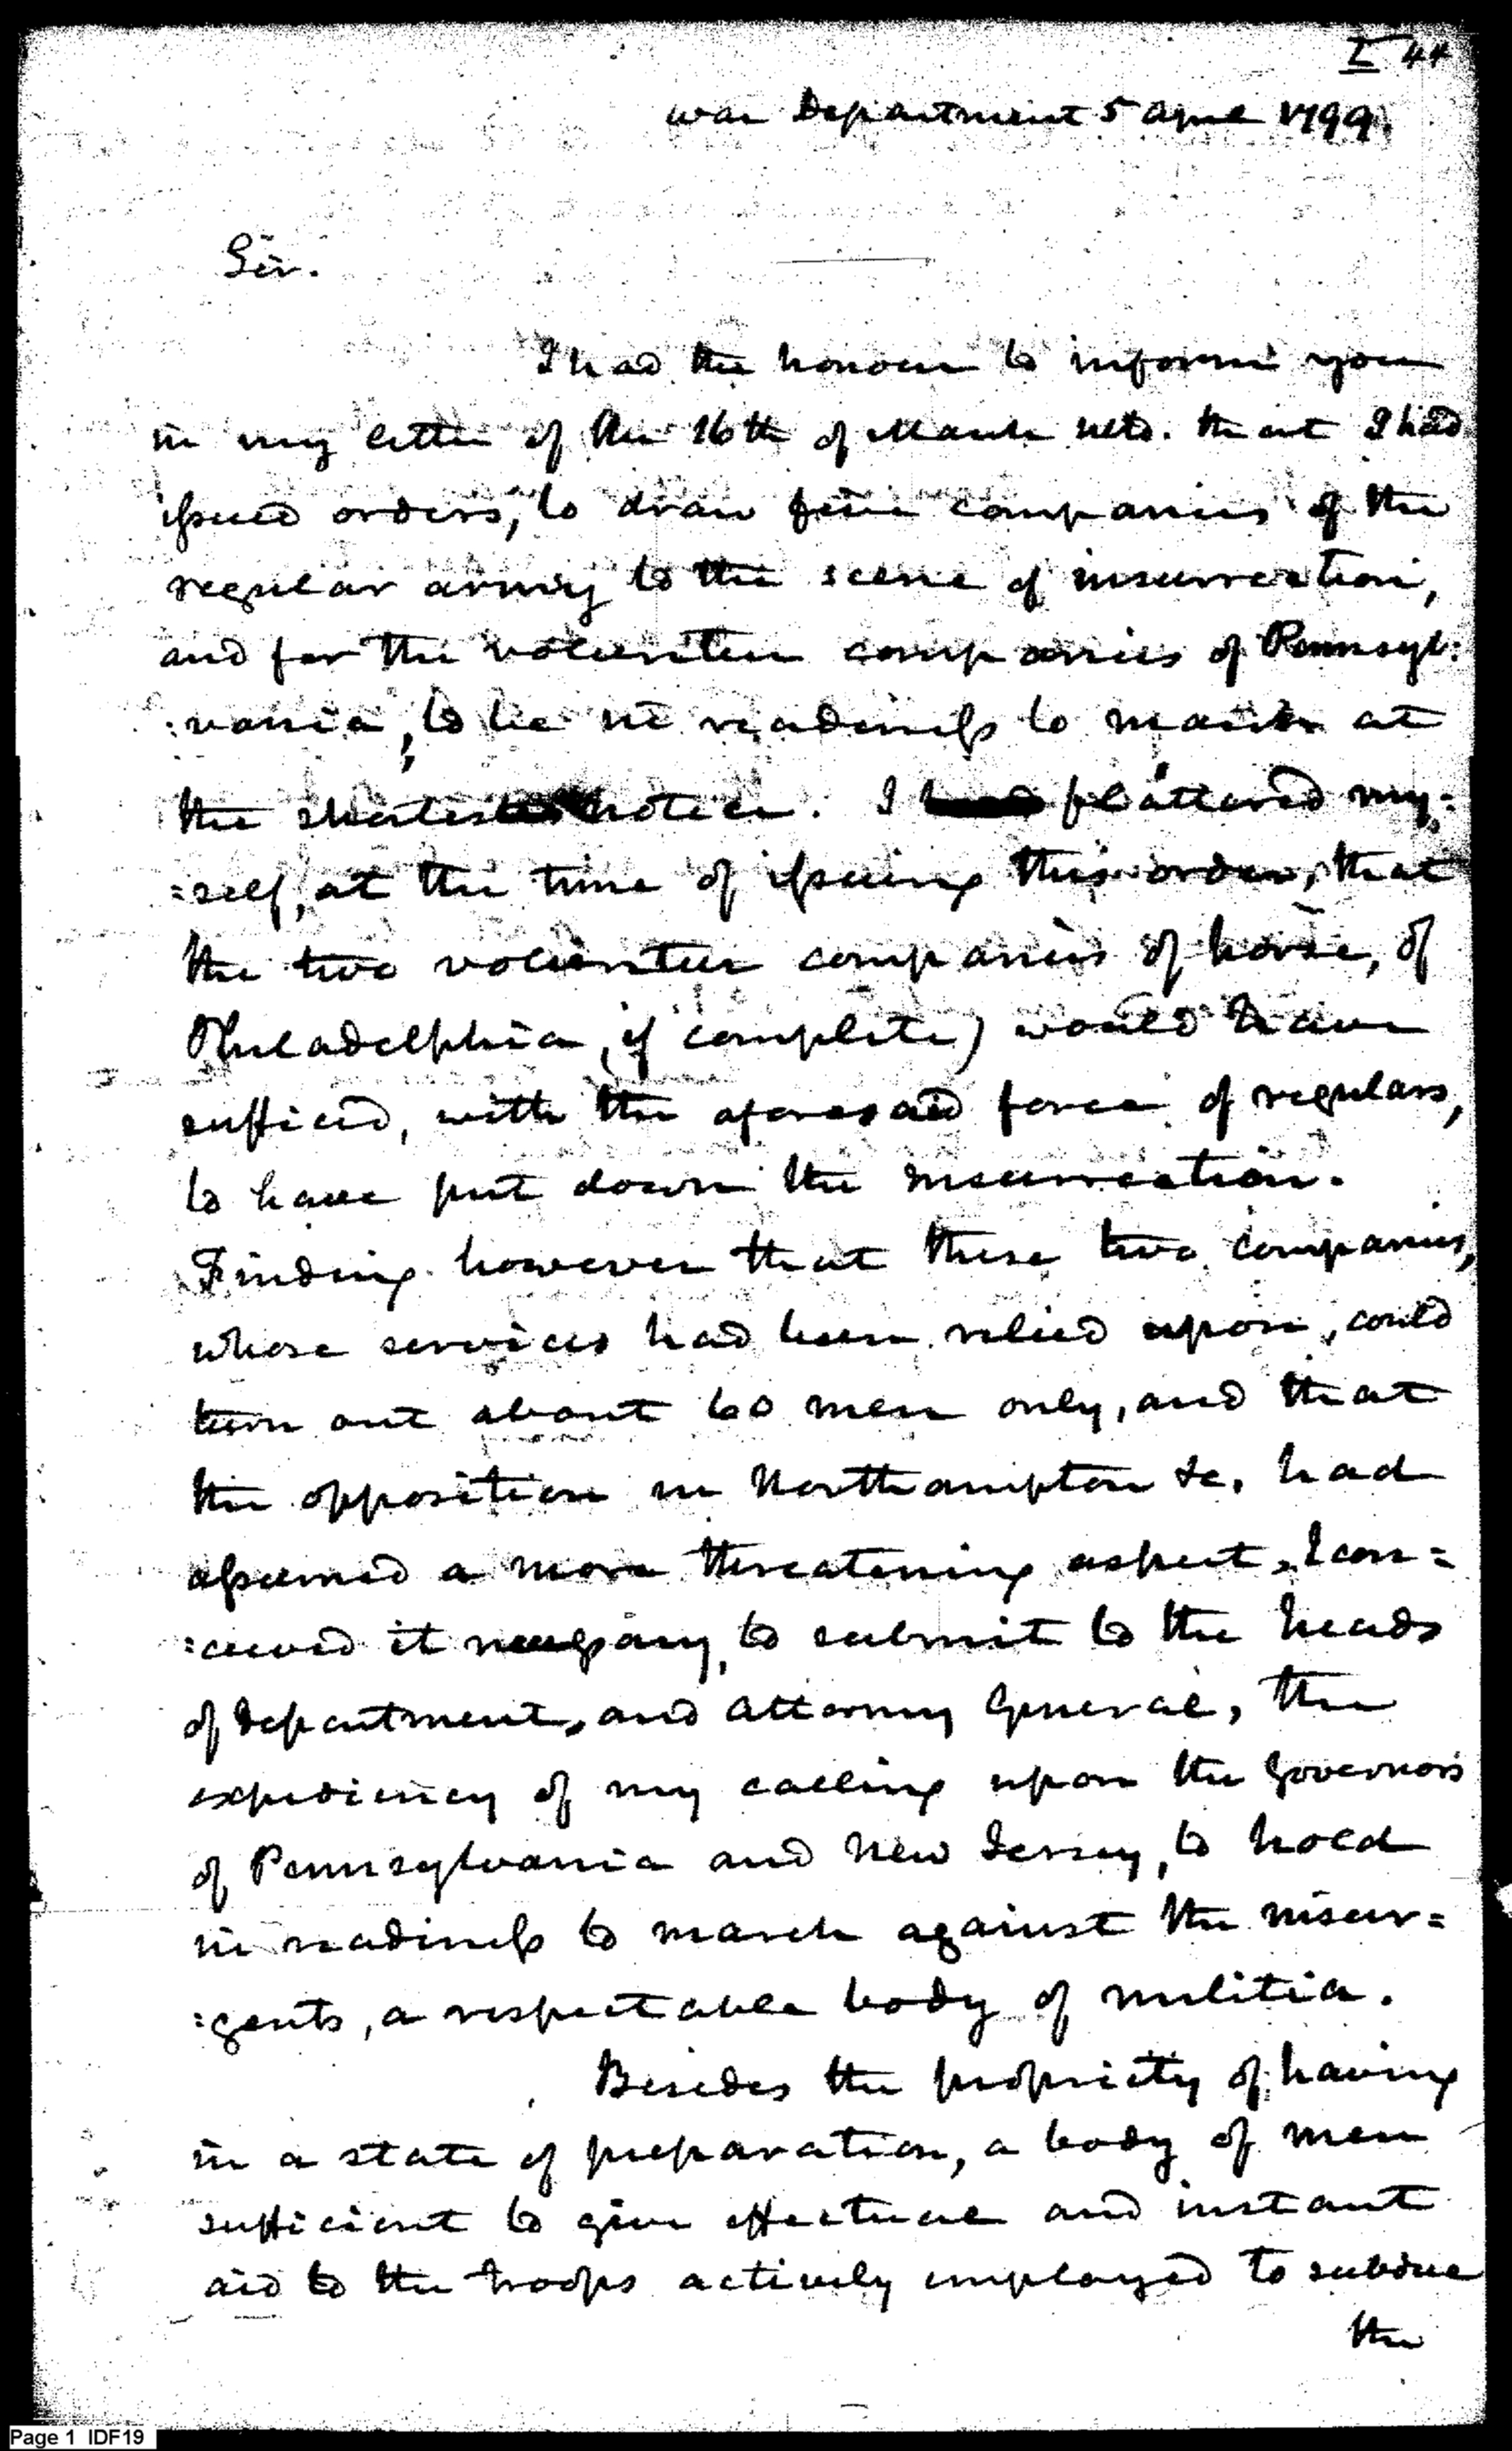 I 44
War Department 5 April 1799.
Sir.
I had the honour to inform you
in my letter of the 16th of March ulto. that I had
issued orders, to draw five companies of the
regular army to the scene of insurrection,
and for the volunteer companies of Pennsyl:
:vania, to be in readiness to march at
the shortest notice. I flattered my=
=self, at the time of issuing this order, that
the two volunteer companies of horse, of
Philadelphia, if complete) would have
sufficed, with the aforesaid force of regulars,
to have put down the insurrection.
Finding however that these two companies,
whose services had been relied upon, could
turn out about 60 men only, and that
the opposition in Northampton &c. had
assumed a more threatening aspect, I con=
:ceived it necessary, to submit to the heads
of department, and attorney General, the
expediency of my calling upon the Governors
of Pennsylvania and New Jersey, to hold
in readiness to march against the insur=
:gents, a respectable body of militia.
Besides the propriety of having
in a state of preparation, a body of men
sufficient to give effectual and instant
aid to the troops actively employed to subdue
the
Page 1 IDF19